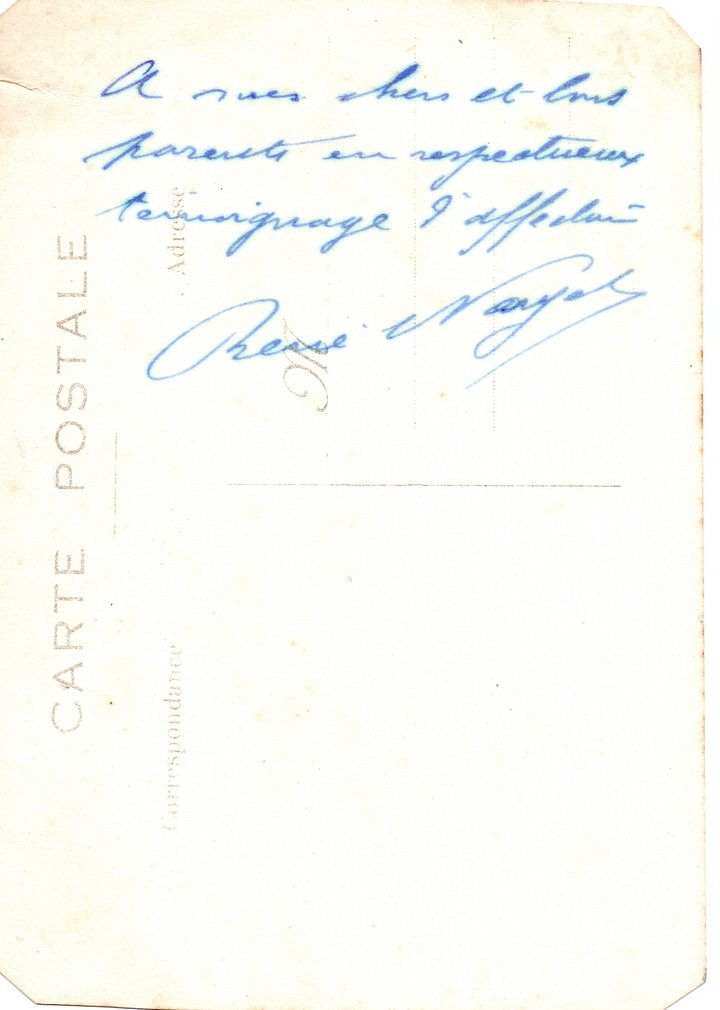 A mes chers et bons
parents en respectueux
temoignage d'affection
René
CARTE POSTALE
Adresse
M
Correspondance